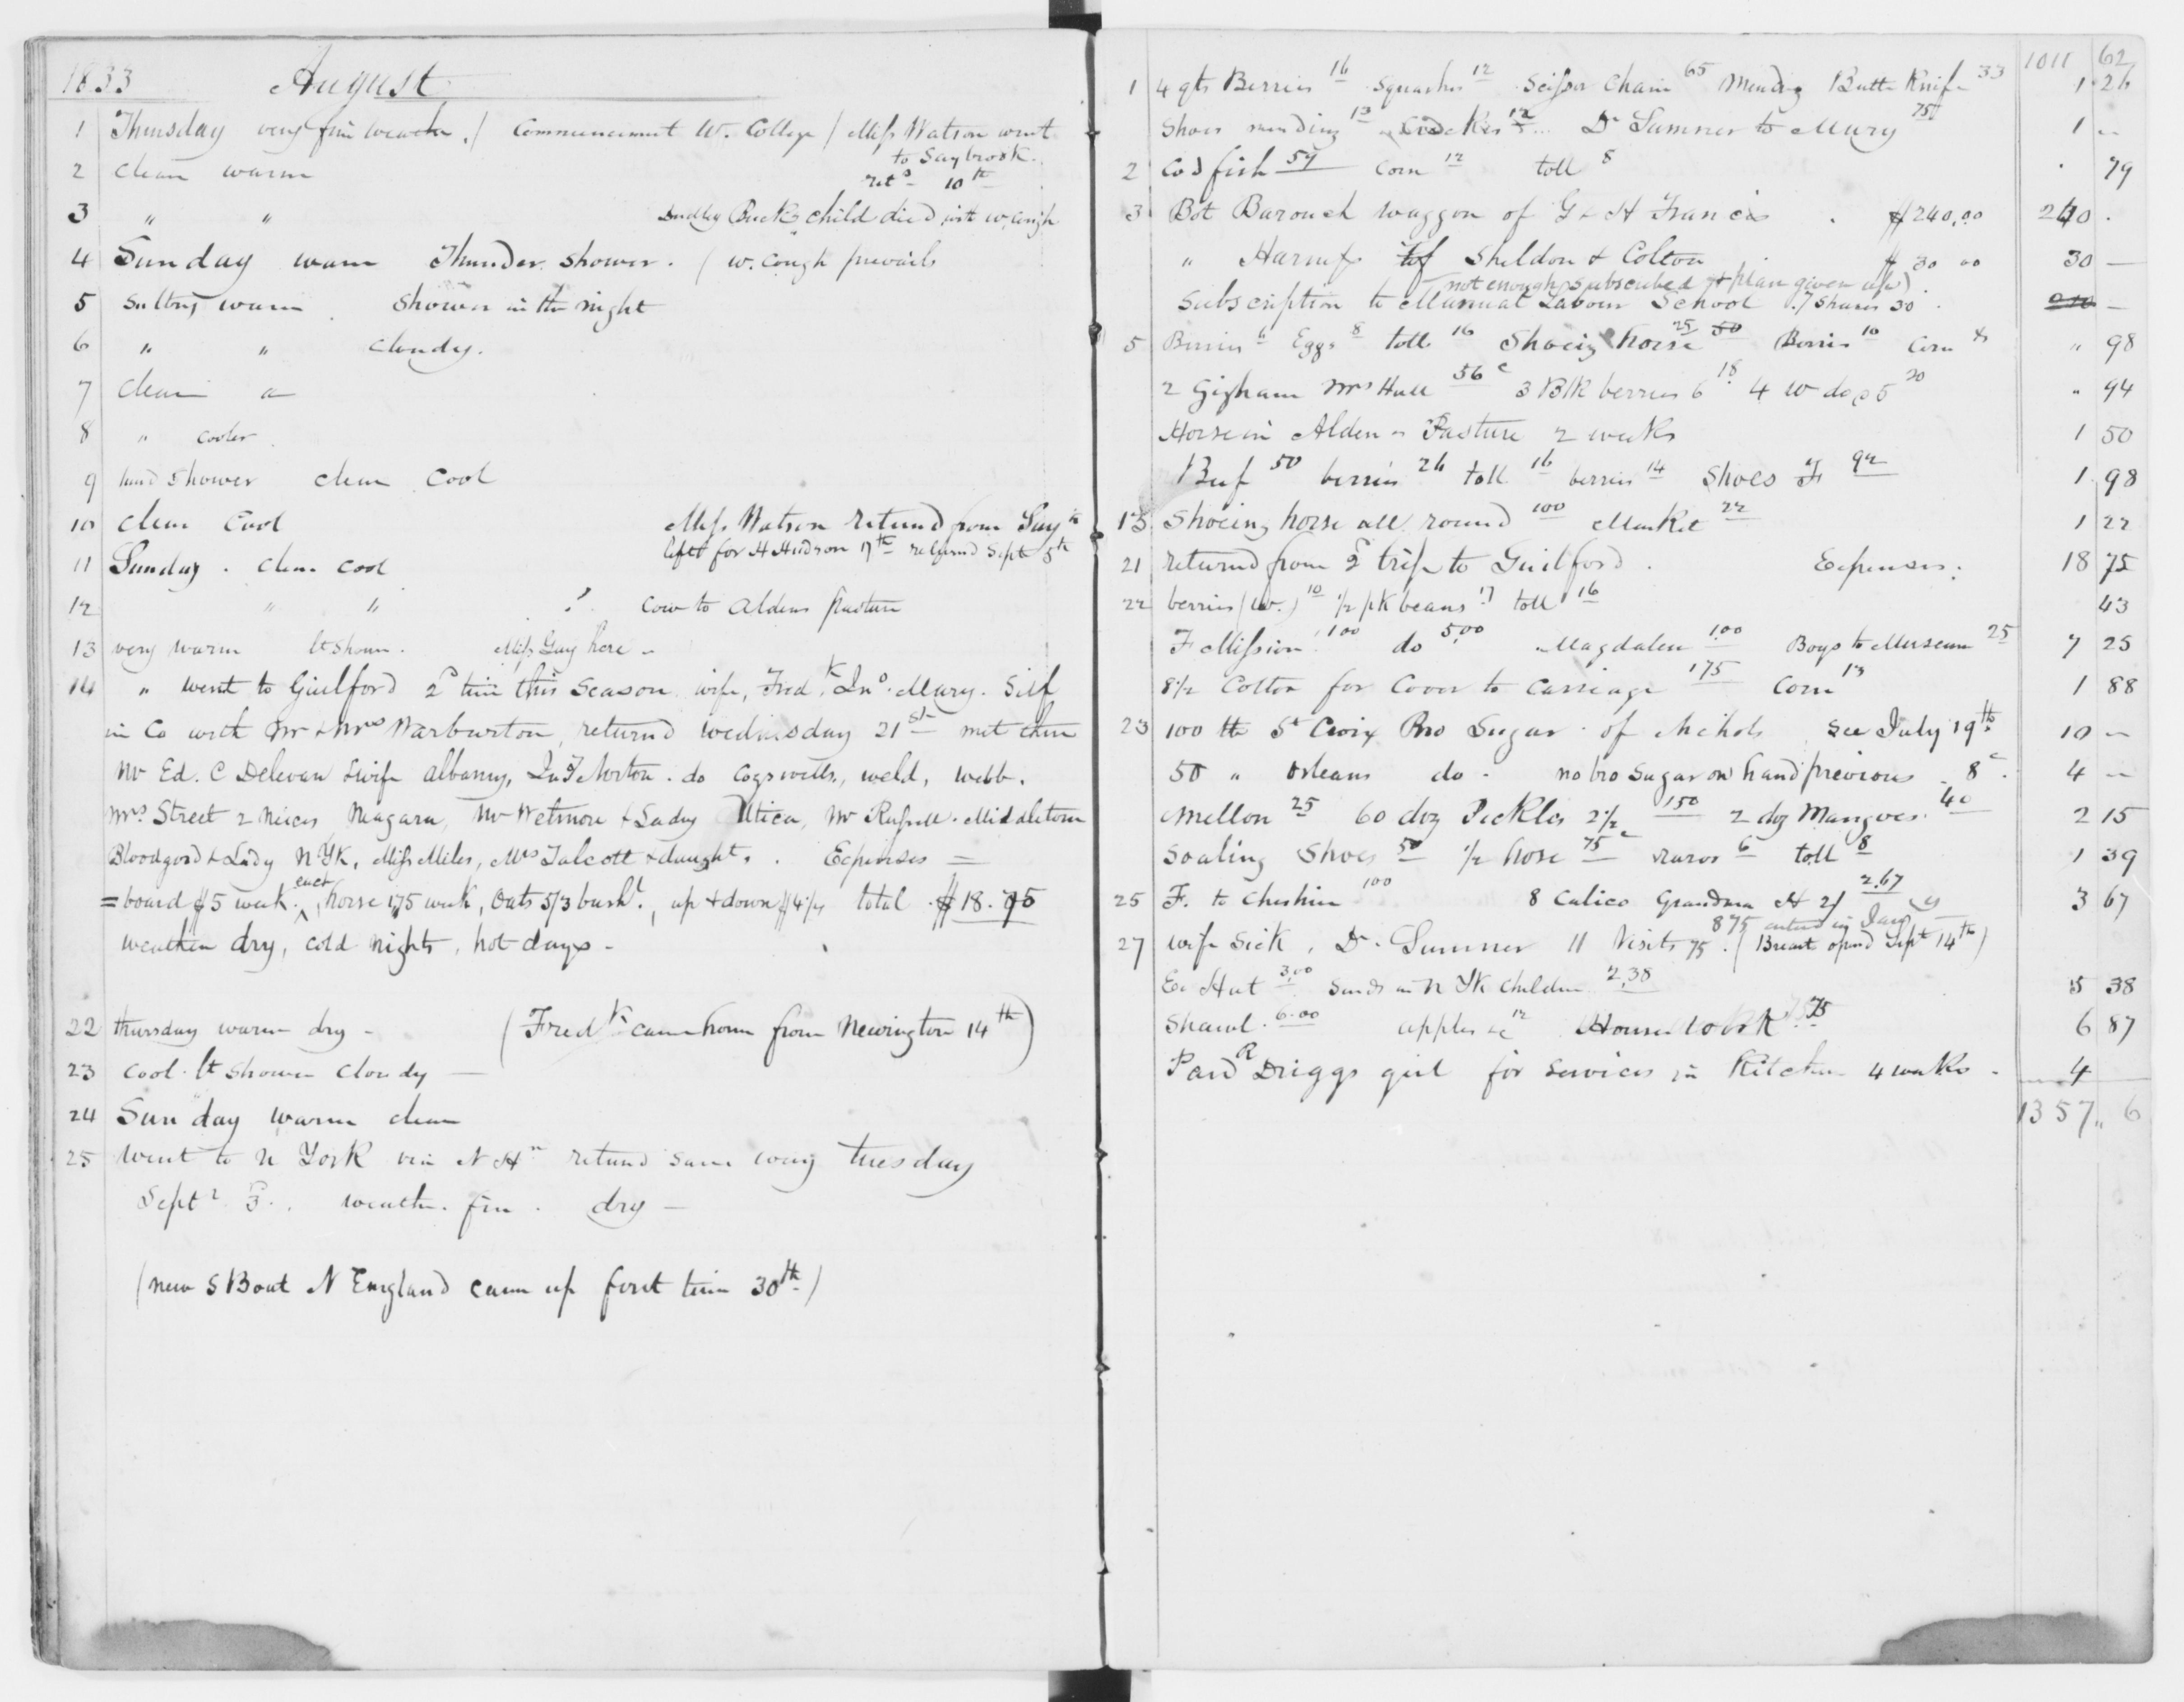 1833 August
1 Thursday very fine weather. / Commencement W. College / Miss Watson went
to Saybrook.
2 Clear warm retd 10th
3 " " Dudley Bucks child died with w. cough
4 Sunday warm Thunder shower. / w. cough prevails
5 Sultry warm shower in the night
6 " " cloudy.
7 Clear
8 " cooler
9 hard shower clear Cool
10 clear Cool Miss Watson returnd from Say
left for H Hudson 17th returnd Sept 5th
11 Sunday. clear cool
12 " " Cow to Aldens pasture
13 very warm lt shower. Miss Guy here
14 " went to Guilford 2d time this season wife, Fredk Jno. Mary. Self
in Co with Mr & Mrs Warburton, returnd wednesday 21st met there
Mr Ed. C Delevan & wife albany, Jno T Norton. do Cogswells, weld, webb.
Mrs. Street 2 neices Niagara, Mr Wetmore & Lady Utica, Mr Russell. Middletown
Bloodgood & Lady N Yk, Miss Miles, Mrs Talcott & daught. Expenses =
= board $5 week each, horse 175 week, Oats 5/3 bushl., up & down $4 total $18.75
weather dry, cold nights, hot days -
22 thursday warm dry - (Fredk came home from Newington 14th)
23 cool. lt shower cloudy
24 Sunday warm clear
25 went to N York via N Hn returnd same way tuesday
Sept 3. weathr. fine. dry -
(new S Boat N England came up first time 30th)
1011 62
1 4 qts Berries 16 Squashes 12 Scissor Chain 65 Mending Butte Knife 33 1 26
Shoes mending 13 Crackers 12 Dr Sumner to Mary 75 1 "
2 Cod fish 59 Corn 12 toll 8 . 79
3 Bot Barouch waggon of G & H Francis . $240.00 240 .
" Harness of Sheldon & Colton $ 30 00 30 —
not enough subscribed & plan given up)
Subscription to Manual Labour School 7 shares 30 —
5 Berries 6 Eggs 8 toll 16 Shoeing horse 25 50 Berries 10 Corn " 98
2 Gigham Mrs Hall 56c 3 Blk berries 6 18 4 W do 5 20 " 94
Horse in Alden's Pasture 2 weeks 1 50
Beef 50 berries 26 toll 16 berries 14 Shoes F 92 1.98
13 Shoeing horse all round 100 Market 22 1 22
21 returnd from 2d trip to Guilford. Expenses. 18 75
22 berries (W.) 10 1/2 pk beans 17 toll 16 43
F Mission 100 do 5,00 Magdalen 1.00 Boys to Museum 25 7 25
8 1/2 Cotton for Cover to Carriage 175 Corn 13 1 88
23 100 lb St Croix Bro Sugar. of Nichols see July 19th 10 —
50 " Orleans do - no bro Sugar on hand previous - 8c. 4 —
Mellon 25 60 doz Pickles 2 1/2 150 2 doz Mangoes. 40 2 15
Soaling Shoes 50 1/2 hose 75c razor 6 toll 8 1 39
25 F. to Cheshire 100 8 Calico Grandma H 2/ 2.67 3 67
875 entered in Jany
27 wife sick, Dr. Sumner 11 Visits 75. (Breast opend Sept 14th)
Ex Hat 3,00 Sunds in N Yk children 2,38 5 38
Shawl. 6.00 apples 12 House work .75 6 87
Paid R Driggs girl for Services in Kitchen 4 weeks - 4
1357 " 6